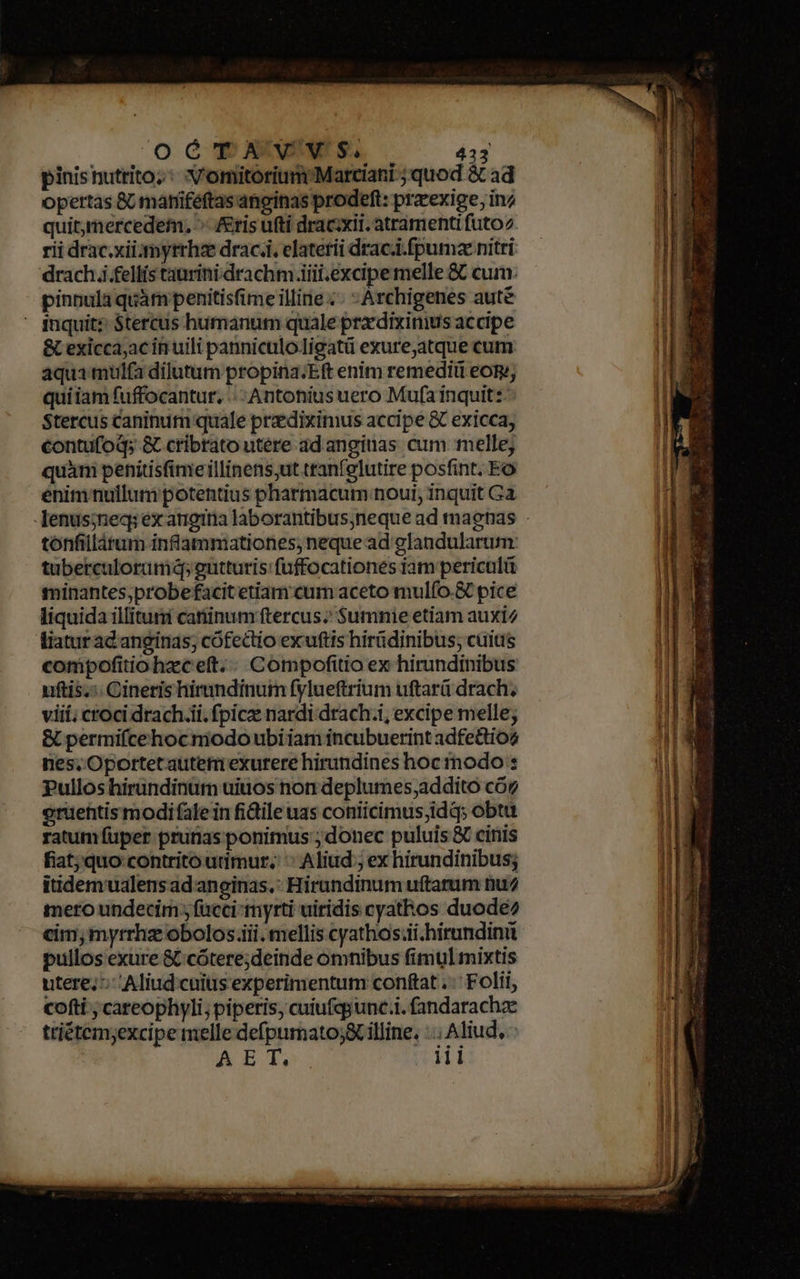 OCTAVVS. 433
pinis nutrito. Vomitorium Marciani; quod & ad
opertas & manifeſtas anginas prodeſt: præexige, in⸗
quit, mercedem. Æris uſti drac. xii. atramenti ſuto⸗
rii drac. xii. myrrhæ drac. i. elaterii drac. i. ſpumæ nitri
drach. i. fellis taurini drachm. iiii. excipe melle & cum
pinnula quàm penitisſime illine. Archigenes autē
inquit: Stercus humanum quale prædiximus accipe
& exicca, ac in uili panniculo ligatū exure, atque cum
aqua mulſa dilutum propina. Eſt enim remediū eoꝝ,
qui iam ſuffocantur. Antonius uero Muſa inquit:
Stercus caninum quale prædiximus accipe & exicca,
contuſoq́; & cribrato utere ad anginas cum melle,
quàm penitisſime illinens, ut tranſglutire posſint. Eo
enim nullum potentius pharmacum noui, inquit Ga
lenus, neq; ex angina laborantibus, neque ad magnas
tonſillarum inflammationes, neque ad glandularum
tuberculorumq́; gutturis ſuffocationes iam periculū
minantes, probe facit etiam cum aceto mulſo & pice
liquida illitum caninum ſtercus. Summe etiam auxi⸗
liatur ad anginas, cōfectio ex uſtis hirūdinibus, cuius
compoſitio hæc eſt. Compoſitio ex hirundinibus
uſtis. Cineris hirundinum ſylueſtrium uſtarū drach.
viii. croci drach. ii. ſpicæ nardi drach. i, excipe melle,
& permiſce hoc modo ubi iam incubuerint adfectio⸗
nes. Oportet autem exurere hirundines hoc modo:
Pullos hirundinum uiuos non deplumes, addito cō⸗
gruentis modi ſale in fictile uas coniicimus, idq́; obtu
ratum ſuper prunas ponimus, donec puluis & cinis
fiat, quo contrito utimur. Aliud, ex hirundinibus,
itidem ualens ad anginas. Hirundinum uſtarum nu⸗
mero undecim, ſucci myrti uiridis cyathos duode⸗
cim, myrrhæ obolos. iii. mellis cyathos. ii. hirundinū
pullos exure & cōtere, deinde omnibus ſimul mixtis
utere. Aliud cuius experimentum conſtat. Folii,
coſti, careophyli, piperis, cuiuſqꝫ unc. i. ſandarachæ
triētem, excipe melle deſpumato, & illine. Aliud,
AET. iii